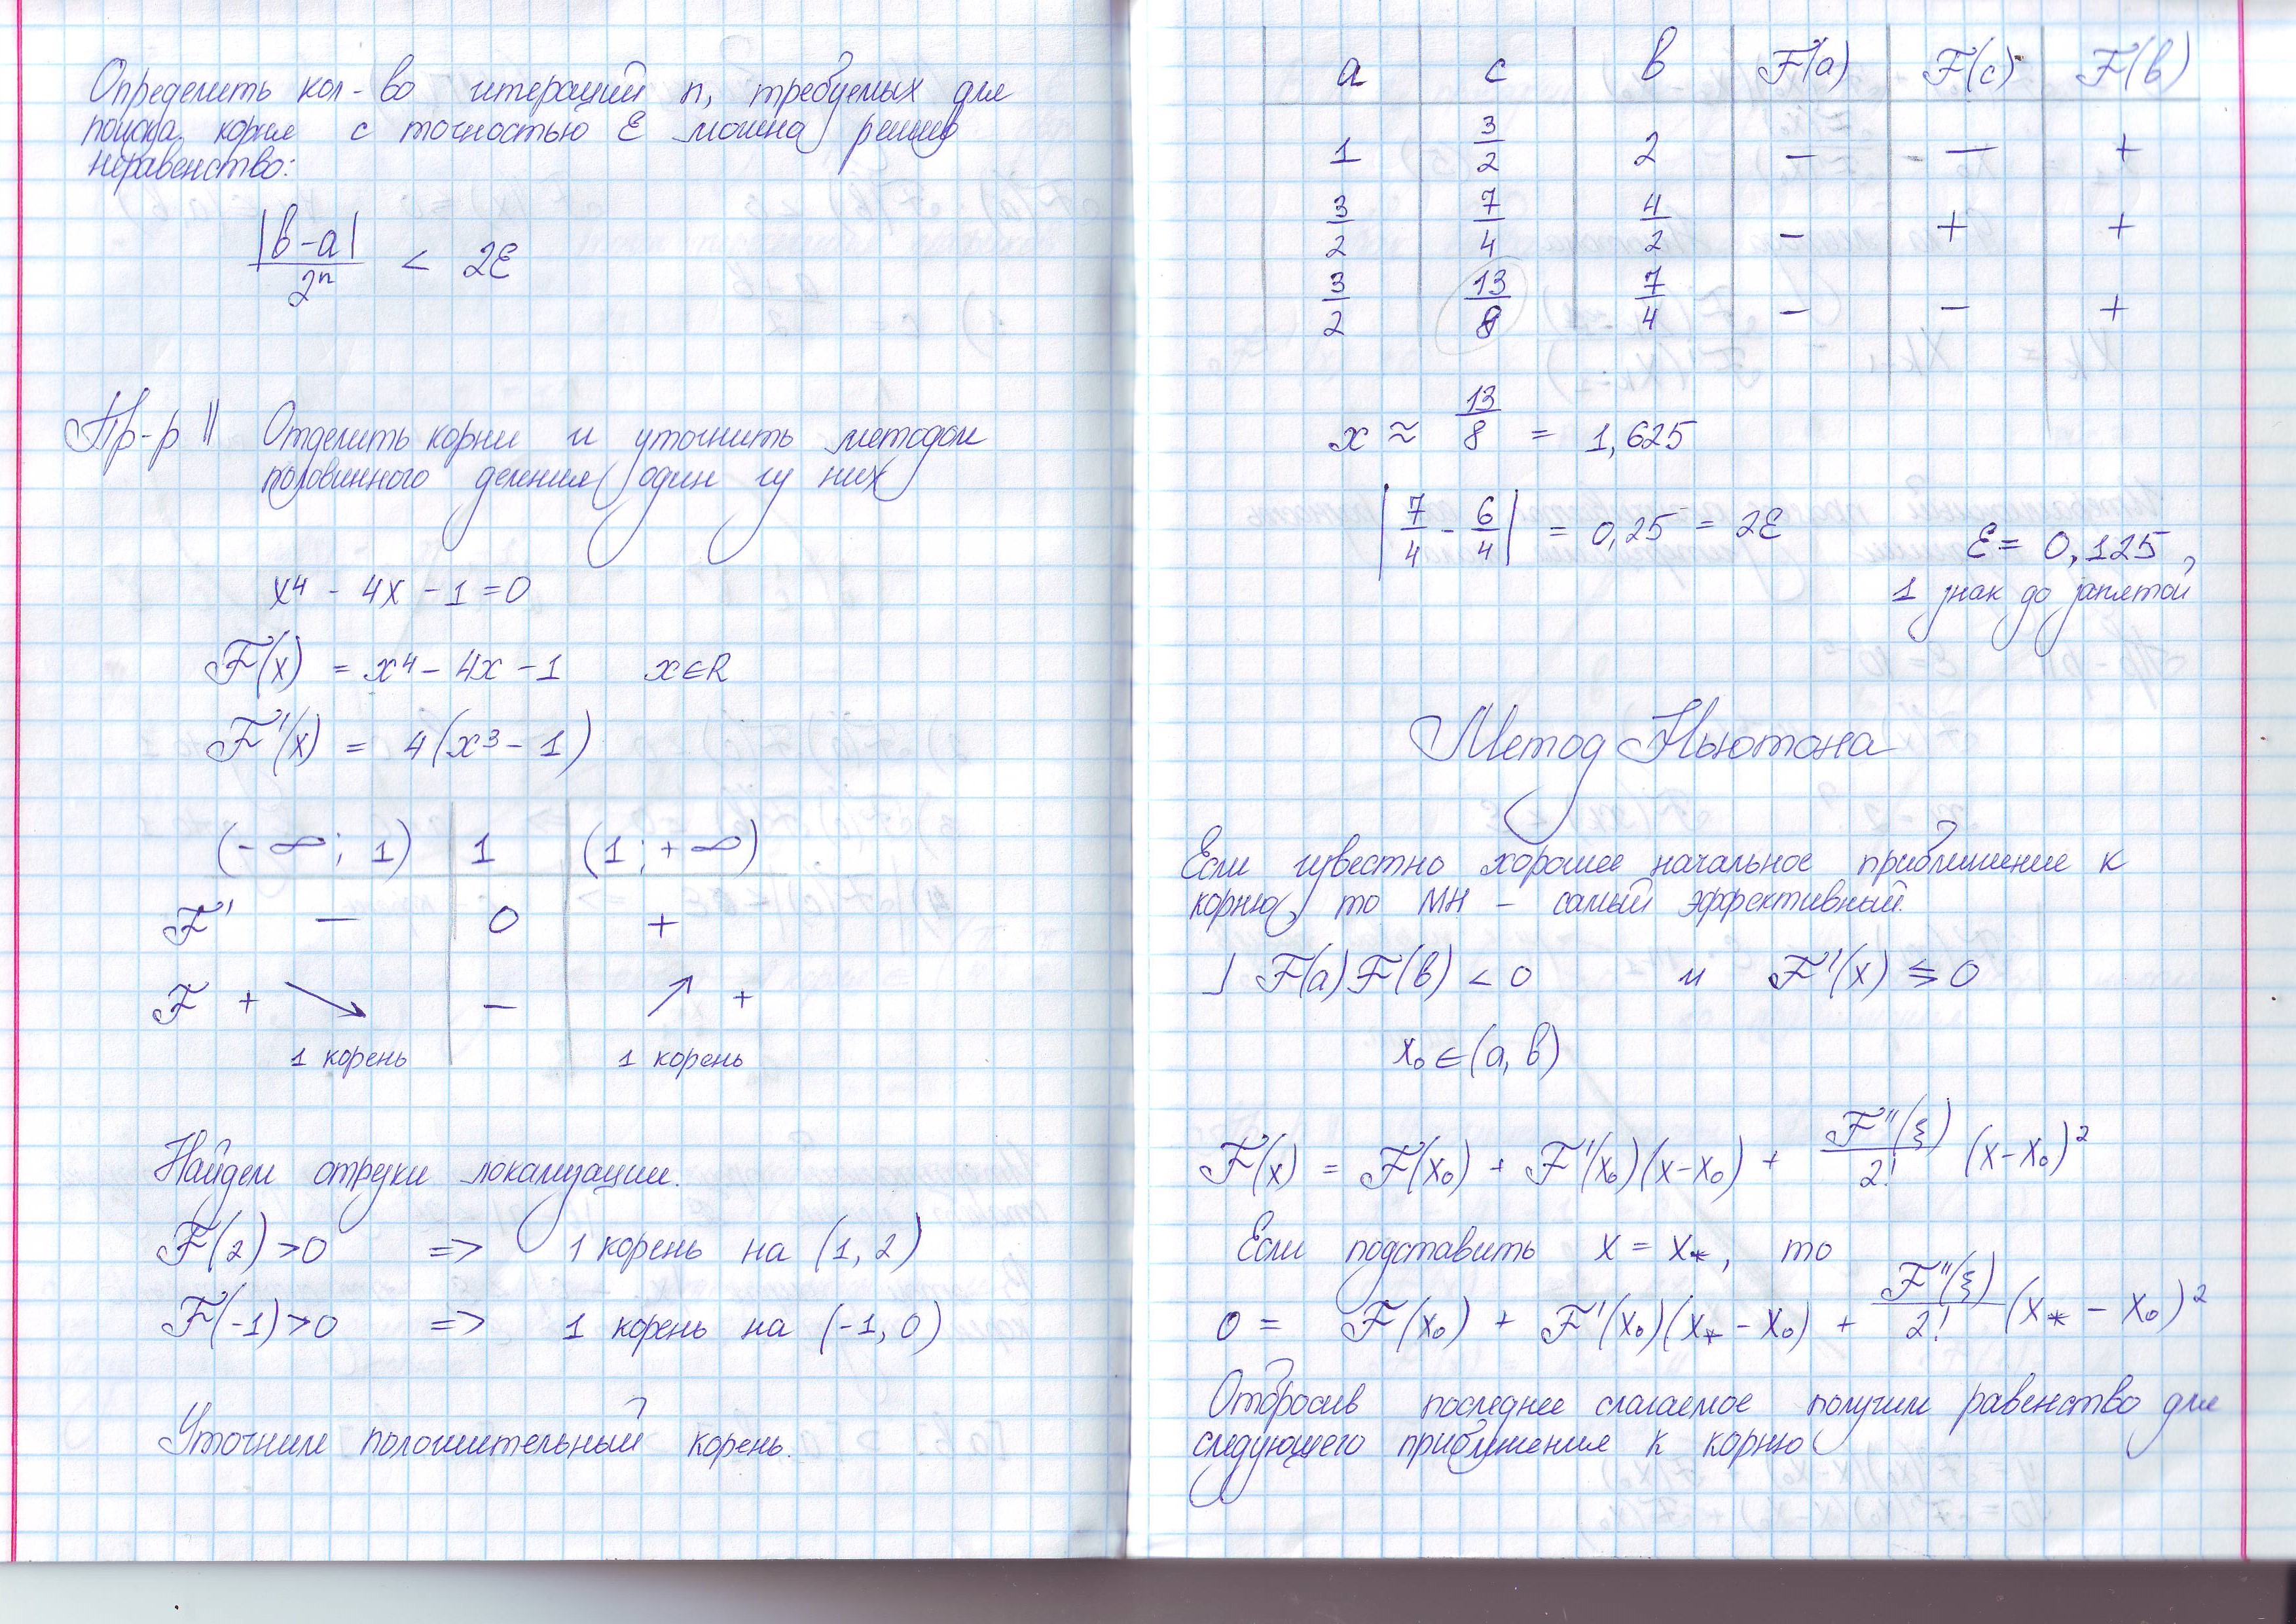 Определить кол-во итераций n, требуемых для
поиска корня с точностью ε можно решив
неравенство:
|b-a| / 2ⁿ < 2ε
Пр-р || Отделить корни и уточнить методом
половинного деления один из них
x⁴ - 4x - 1 = 0
F(x) = x⁴ - 4x - 1 x∈R
F'(x) = 4(x³ - 1)
(-∞; 1) 1 (1; +∞)
F' — 0 +
F + ↘ — ↗ +
1 корень 1 корень
Найдем отрезки локализации.
F(2) > 0 => 1 корень на (1, 2)
F(-1) > 0 => 1 корень на (-1, 0)
Уточним положительный корень.
a c b F(a) F(c) F(b)
1 3/2 2 — — +
3/2 7/4 4/2 — + +
3/2 13/8 7/4 — — +
x ≈ 13/8 = 1,625
|7/4 - 6/4| = 0,25 = 2ε ε = 0,125,
1 знак до запятой
Метод Ньютона
Если известно хорошее начальное приближение к
корню, то МН - самый эффективный.
⅃ F(a)F(b) < 0 и F'(x) ≶ 0
x₀ ∈ (a, b)
F(x) = F(x₀) + F'(x₀)(x-x₀) + F''(ξ)/2! (x-x₀)²
Если подставить x = x*, то
0 = F(x₀) + F'(x₀)(x* - x₀) + F''(ξ)/2! (x* - x₀)²
Отбросив последнее слагаемое получим равенство для
следующего приближения к корню